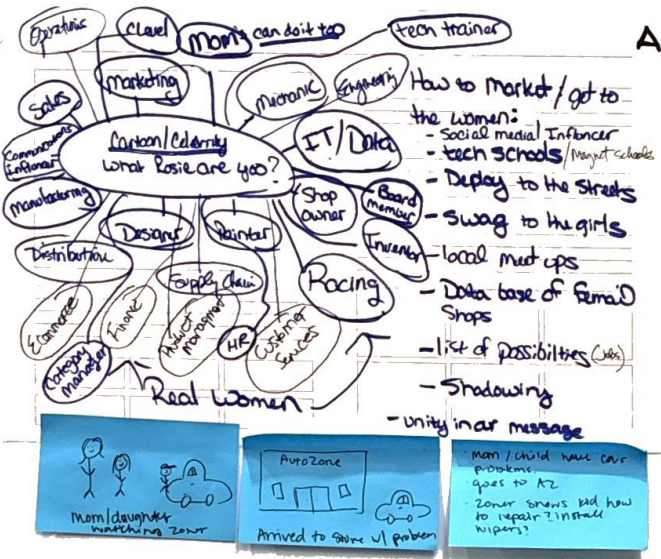 Operations
C Level
Mom's can do it too
tech trainer
A
Marketing
Mechanic
Engineering
Sales
Communications
Influencer
Manufacturing
Cartoon/Celebrity
What Rosie are you?
IT/Data
Shop
owner
Board
member
Inventor
Designer
Painter
Distribution
Supply Chain
Racing
Ecommerse
Finance
Product
managment
HR
Customer
Services
Category
manager
Real Women
How to market/get to
the women:
- Social medial Influncer
- tech schools/Magnet schools
- Deploy to the streets
- Swag to the girls
- local meet ups
- Data base of femail
Shops
- list of possibilties (Jobs)
- Shadowing
- unity in our message
mom/daughter
watching zoner
AutoZone
Arrived to store w/ problem
- mom/child have car
problems.
- goes to AZ
- zoner shows kid how
to repair? install
wipers?